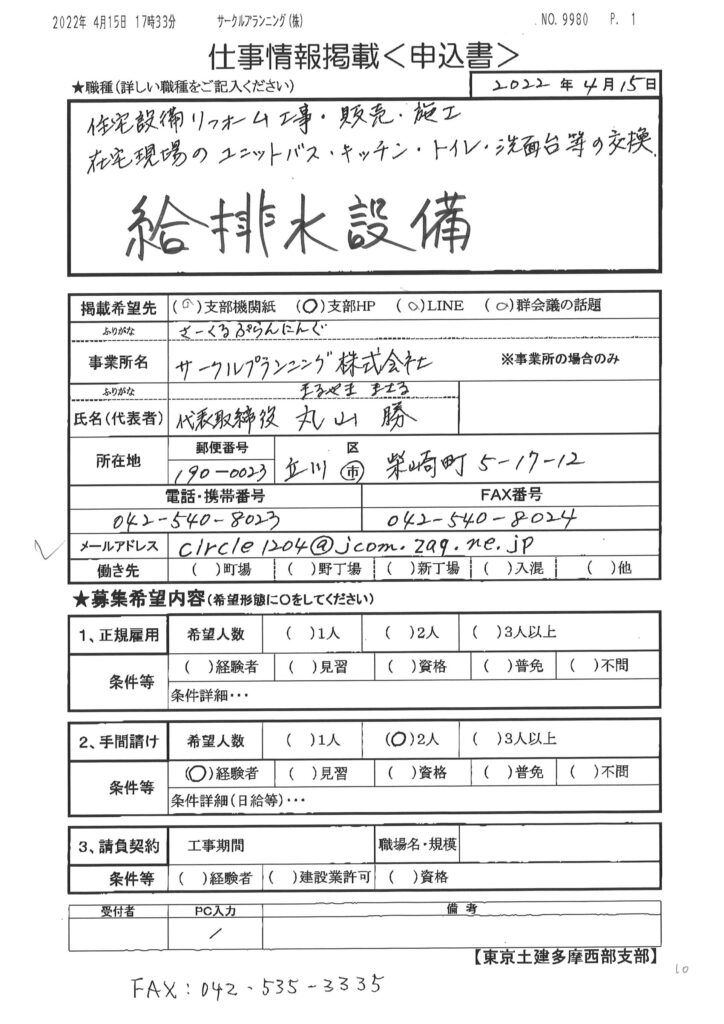 2022年 4月15日 17時33分 サークルプランニング(株) NO. 9980 P. 1
仕事情報掲載<申込書>
★職種(詳しい職種をご記入ください) 2022年4月15日
住宅設備リフォーム工事・販売・施工
在宅現場のユニットバス・キッチン・トイレ・洗面台等の交換
給排水設備
掲載希望先 (○)支部機関紙 (○)支部HP (○)LINE (○)群会議の話題
ふりがな さーくるぷらんにんぐ
事業所名 サークルプランニング株式会社 ※事業所の場合のみ
ふりがな まるやま まさる
氏名(代表者) 代表取締役 丸山 勝
所在地 郵便番号 190-0023 立川 区 市 柴崎町 5-17-12
電話・携帯番号 FAX番号
042-540-8023 042-540-8024
メールアドレス circle1204@jcom.zaq.ne.jp
働き先 ( )町場 ( )野丁場 ( )新丁場 ( )入混 ( )他
★募集希望内容(希望形態に○をしてください)
1、正規雇用 希望人数 ( )1人 ( )2人 ( )3人以上
条件等 ( )経験者 ( )見習 ( )資格 ( )普免 ( )不問
条件詳細・・・
2、手間請け 希望人数 ( )1人 (○)2人 ( )3人以上
条件等 (○)経験者 ( )見習 ( )資格 ( )普免 ( )不問
条件詳細(日給等)・・・
3、請負契約 工事期間 職場名・規模
条件等 ( )経験者 ( )建設業許可 ( )資格
受付者 PC入力 備考
/
【東京土建多摩西部支部】
10
FAX:042-535-3335